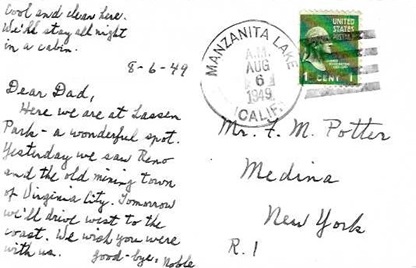 Cool and clean here.
We'll stay all night
in a cabin.
8-6-49
Dear Dad,
Here we are at Lassen
Park - a wonderful spot.
Yesterday we saw Reno
and the old mining town
of Virginia City. Tomorrow
we'll drive west to the
coast. We wish you were
with us. good-bye, Noble
MANZANITA LAKE
A.M.
AUG
6
1949
CALIF.
UNITED
STATES
POSTAGE
1 CENT 1
Mr. F. M. Potter
Medina
New York
R.1